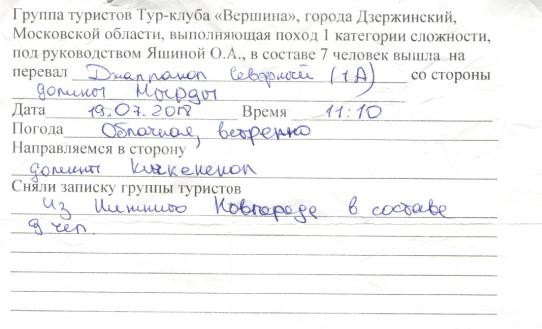 Группа туристов Тур-клуба «Вершина», города Дзержинский,
Московской области, выполняющая поход 1 категории сложности,
под руководством Яшиной О.А., в составе 7 человек вышла на
перевал Джалпакол северный (1А) со стороны
долины Мырды
Дата 19.07.2018 Время 11:10
Погода Облачная, ветренно
Направляемся в сторону
долины Кичкинекол
Сняли записку группы туристов
Из Нижнего Новгорода в составе
9 чел.